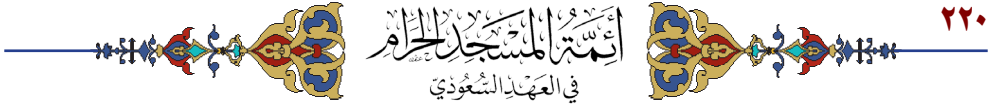 ٢٢٠
أَئِمَّةُ المَسْجِدِ الحَرَامِ
فِي العَهْدِ السُّعُودِيّ